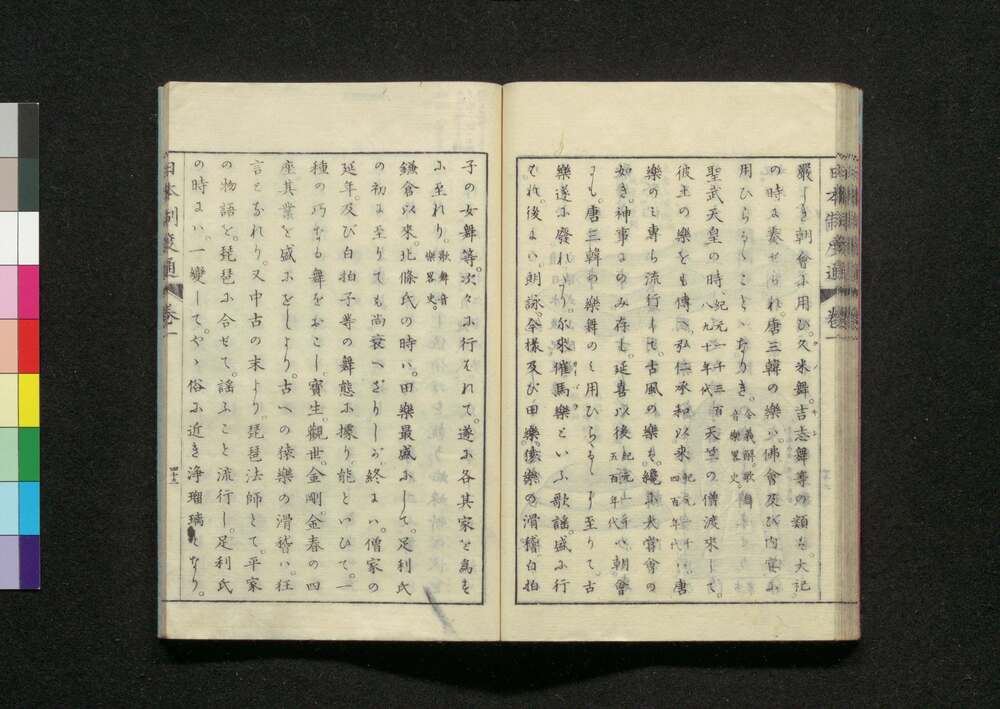 嚴しき朝會に用ひ。久米舞。吉志舞等の類を。大祀
の時に奏せられ。唐三韓の樂ハ。佛會及び内宴に
用ひらるゝことゝなりき。令義解。歌舞音樂畧史。
聖武天皇の時、紀元一千三百八九十年代天竺の僧渡來して。
彼土の樂をも傳へ。弘仁承和以來紀元千四百年代ハ唐
樂のミ專ら流行して。古風の樂を。纔に大嘗會の
如き。神事にのみ存し。延喜以後紀元一千五百年代ハ。朝會
にも。唐三韓の樂舞のミ用ひらるゝに至りて。古
樂遂に廢れたり。尔來催馬樂といふ歌謡。盛に行
はれ。後にハ。朗詠。今樣及び田樂。猿樂の滑稽白拍
子の女舞等。次々に行はれて。遂に各其家を爲を
に至れり。歌舞音樂畧史。
鎌倉以來。北條氏の時ハ。田樂最盛にして。足利氏
の初に至りても尚衰へざりしが。終にハ。僧家の
延年。及び白拍子等の舞態に據り。能といひて。一
種の巧なる舞をおこし。寶生。觀世。金剛。金春の四
座其業を盛にをしより。古への猿樂の滑稽ハ。狂
言となれり。又中古の末より。琵琶法師とて。平家
の物語を。琵琶に合せて。謡ふこと流行し。足利氏
の時にハ。一變して。やゝ俗に近き浄瑠璃となり。
日本制度通
卷一
四十三